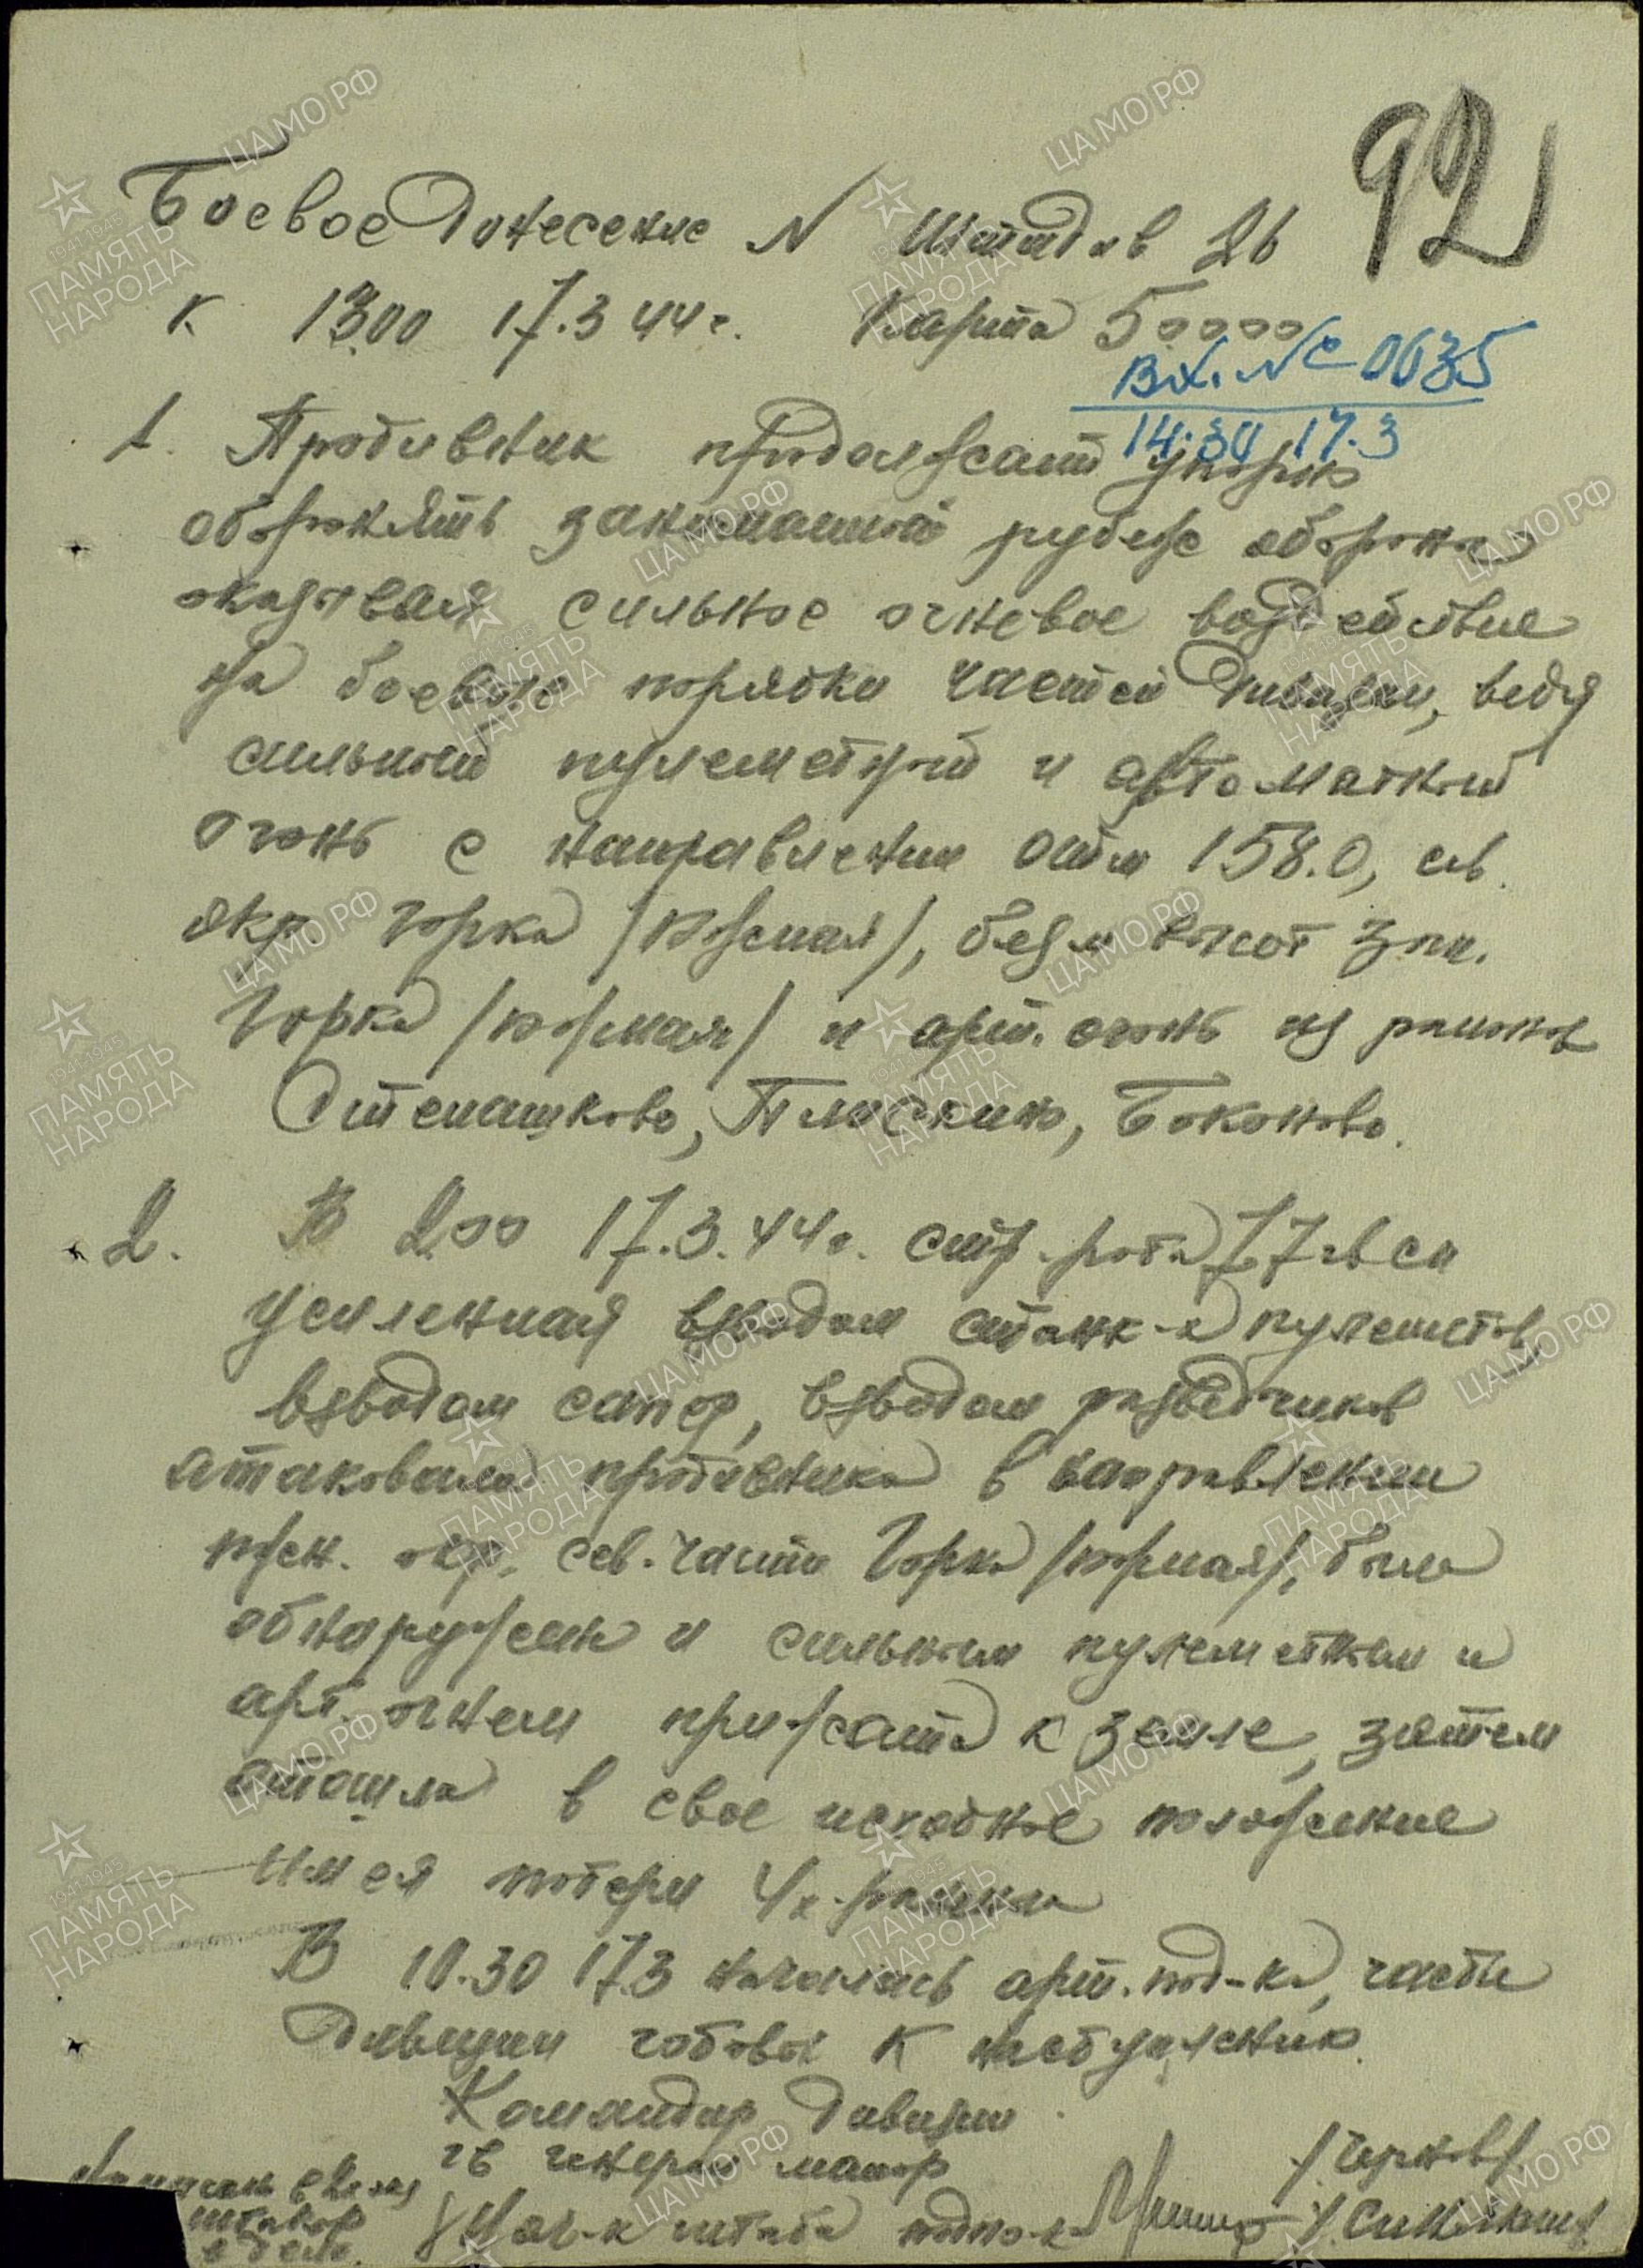 92
Боевое Донесение N Штадив 26
к 13.00 17.3 44г. Карта 50000
Вх. № 0635
14:30 17.3
1. Противник продолжает упорно
оборонять занимаемый рубеж обороны
оказывая сильное огневое воздействие
на боевые порядки частей дивизии, ведя
сильный пулеметный и автоматный
огонь с направлении отм 158.0, сев.
окр. Горка /южная/, безым. высот зап.
Горка /южная/ и арт. огонь из районов
Стенашково, Плюскино, Боконово.
2. В 2.00 17.3.44г. стр. рота 77 гв сп
усиленная взводом станк-х пулеметов,
взводом сапер, взводом разведчиков
атаковала противника в направлении
сев. части Горка /южная/, была
обнаружена и сильным пулеметным и
арт. огнем прижата к земле, затем
отошла в свое исходное положение
имея потери 4х ранены
В 10.30 17.3 началась арт. под-ка, части
дивизии готовы к наступлению.
Командир дивизии
гв генерал майор /Чернов/
Нач-к штаба подпол-к /Синицкий/